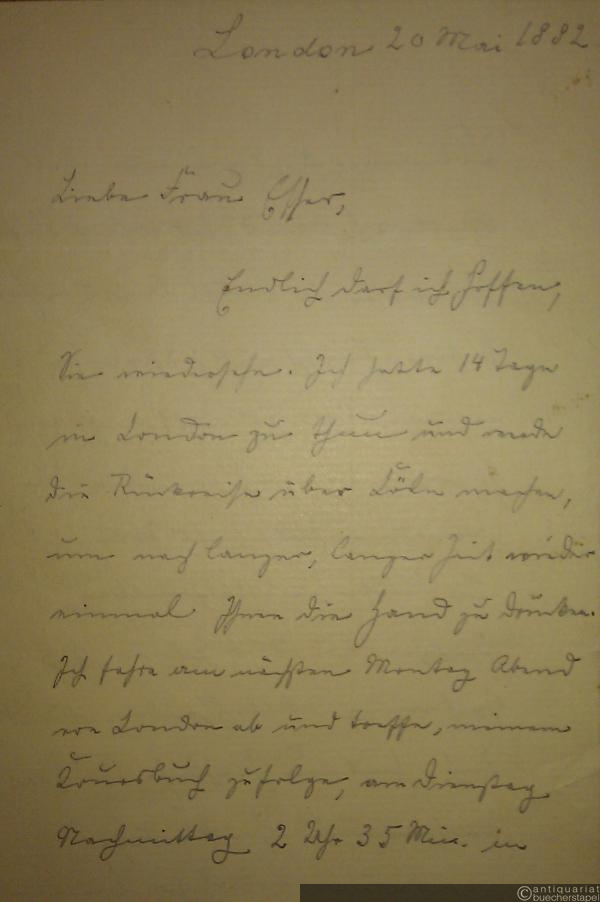 London 20 Mai 1882
Liebe Frau Esser,
Endlich darf ich hoffen,
Sie wiedersehn. Ich hatte 14 Tage
in London zu thun und werde
die Rückreise über Köln machen,
um nach langer, langer Zeit wieder
einmal Ihnen die Hand zu drücken.
Ich fahre am nächsten Montag Abend
von London ab und treffe, meinem
Coursbuch zufolge, am Dienstag
Nachmittag 2 Uhr 35 Min. in
© antiquariat
buecherstapel